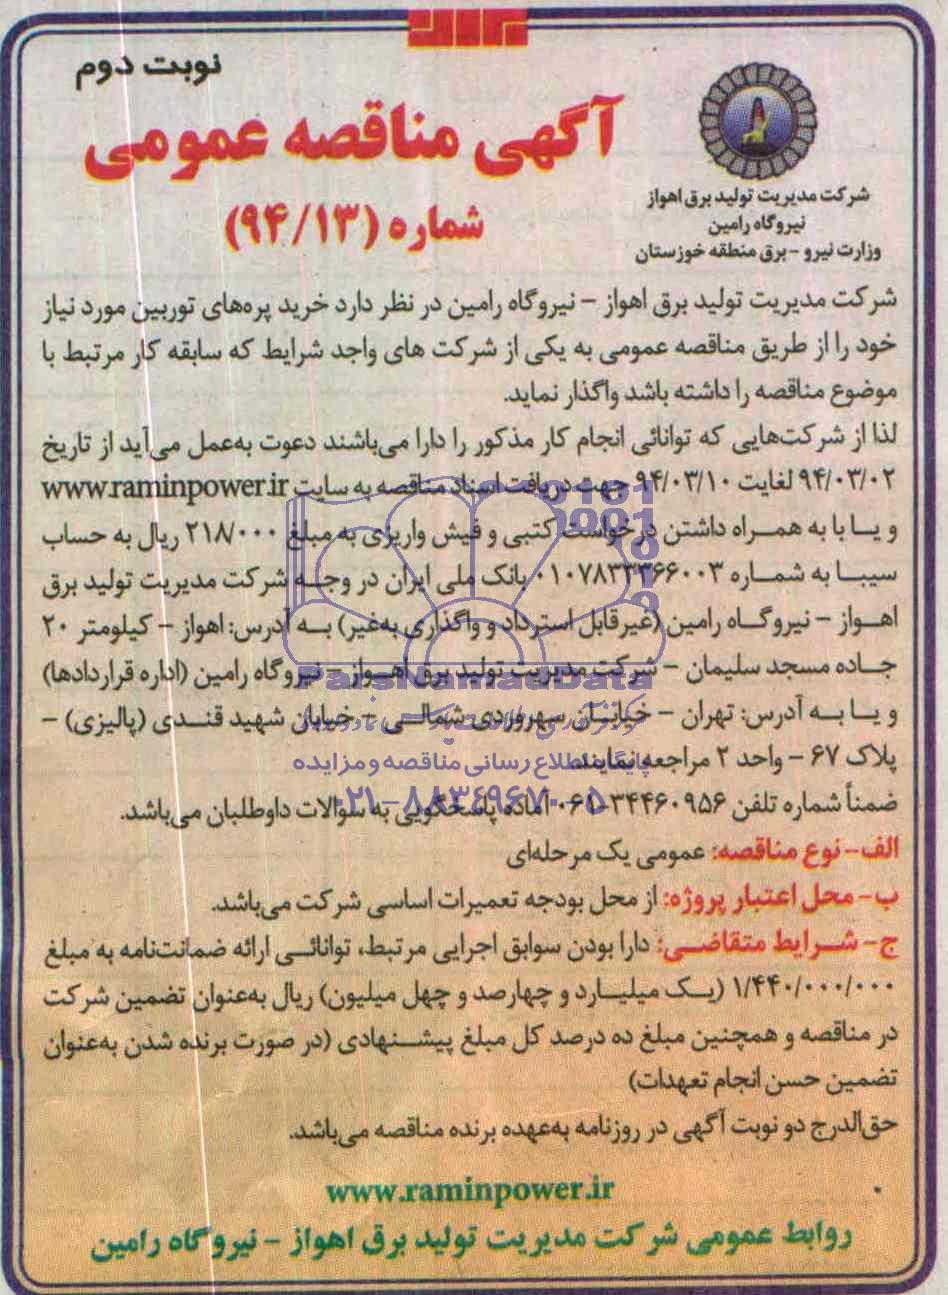 نوبت دوم
آگهی مناقصه عمومی
شماره (۹۴/۱۳)
شرکت مدیریت تولید برق اهواز
نیروگاه رامین
وزارت نیرو - برق منطقه خوزستان
شرکت مدیریت تولید برق اهواز - نیروگاه رامین در نظر دارد خرید پره‌های توربین مورد نیاز
خود را از طریق مناقصه عمومی به یکی از شرکت های واجد شرایط که سابقه کار مرتبط با
موضوع مناقصه را داشته باشد واگذار نماید.
لذا از شرکت‌هایی که توانائی انجام کار مذکور را دارا می‌باشند دعوت به‌عمل می‌آید از تاریخ
۹۴/۰۳/۰۲ لغایت ۹۴/۰۳/۱۰ جهت دریافت اسناد مناقصه به سایت www.raminpower.ir
و یا با به همراه داشتن درخواست کتبی و فیش واریزی به مبلغ ۲۱۸/۰۰۰ ریال به حساب
سیبا به شماره ۰۱۰۷۸۳۳۳۶۶۰۰۳ بانک ملی ایران در وجه شرکت مدیریت تولید برق
اهواز - نیروگاه رامین (غیرقابل استرداد و واگذاری به‌غیر) به آدرس: اهواز - کیلومتر ۲۰
جاده مسجد سلیمان - شرکت مدیریت تولید برق اهواز - نیروگاه رامین (اداره قراردادها)
ParsNamadData
و یا به آدرس: تهران - خیابان سهروردی شمالی - خیابان شهید قندی (پالیزی) -
پلاک ۶۷ - واحد ۲ مراجعه نمایند.
پایگاه اطلاع رسانی مناقصه و مزایده
ضمناً شماره تلفن ۳۴۴۶۰۹۵۶-۰۶۱ آماده پاسخگویی به سؤالات داوطلبان می‌باشد.
۰۲۱-۸۸۳۴۹۶۷۰-۵
الف- نوع مناقصه: عمومی یک مرحله‌ای
ب- محل اعتبار پروژه: از محل بودجه تعمیرات اساسی شرکت می‌باشد.
ج- شرایط متقاضی: دارا بودن سوابق اجرایی مرتبط، توانائی ارائه ضمانت‌نامه به مبلغ
۱/۴۴۰/۰۰۰/۰۰۰ (یک میلیارد و چهارصد و چهل میلیون) ریال به‌عنوان تضمین شرکت
در مناقصه و همچنین مبلغ ده درصد کل مبلغ پیشنهادی (در صورت برنده شدن به‌عنوان
تضمین حسن انجام تعهدات)
حق‌الدرج دو نوبت آگهی در روزنامه به‌عهده برنده مناقصه می‌باشد.
www.raminpower.ir
روابط عمومی شرکت مدیریت تولید برق اهواز - نیروگاه رامین